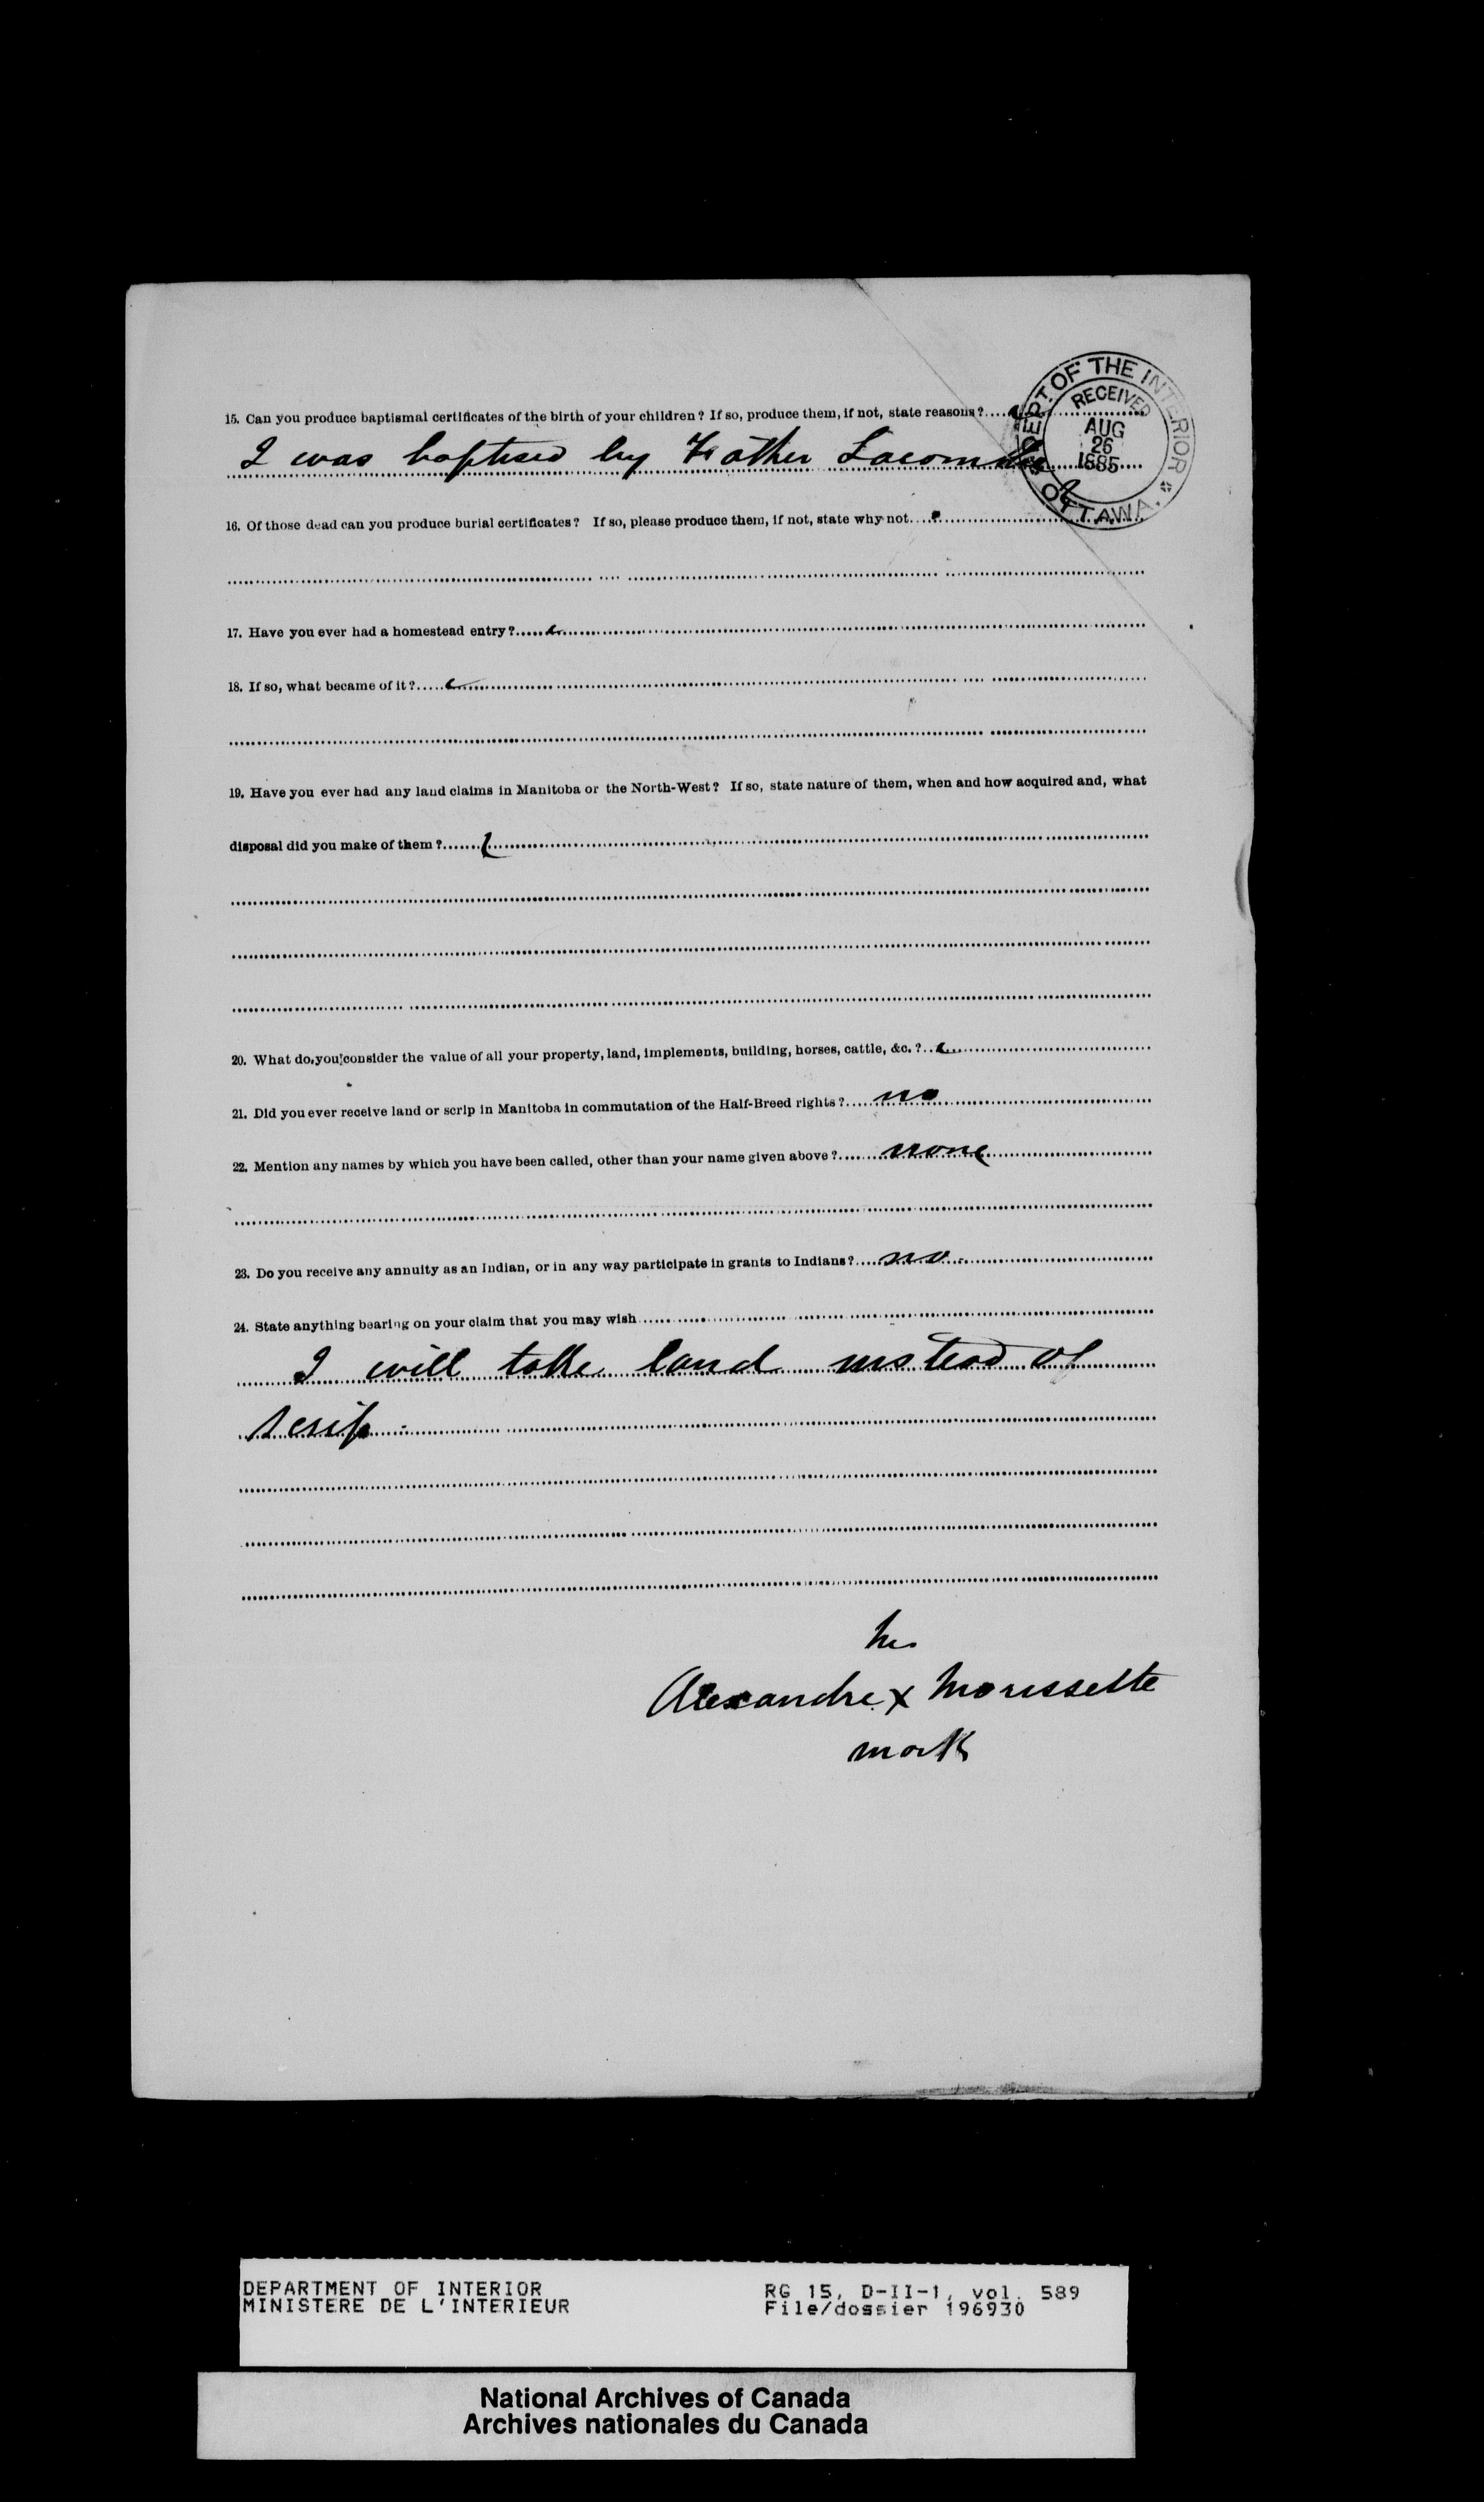 DEPT. OF THE INTERIOR
RECEIVED
AUG
26
1885
OTTAWA
15. Can you produce baptismal certificates of the birth of your children? If so, produce them, if not, state reasons?
I was baptised by Father Lacombe
16. Of those dead can you produce burial certificates? If so, please produce them, if not, state why not
17. Have you ever had a homestead entry?
18. If so, what became of it?
19. Have you ever had any land claims in Manitoba or the North-West? If so, state nature of them, when and how acquired and, what
disposal did you make of them?
20. What do you consider the value of all your property, land, implements, building, horses, cattle, &c.?
21. Did you ever receive land or scrip in Manitoba in commutation of the Half-Breed rights? no
22. Mention any names by which you have been called, other than your name given above? none
23. Do you receive any annuity as an Indian, or in any way participate in grants to Indians? no
24. State anything bearing on your claim that you may wish
I will take land instead of
scrip
his
Alexandre x Morissette
mark
DEPARTMENT OF INTERIOR RG 15, D-II-1, vol. 589
MINISTERE DE L'INTERIEUR File/dossier 196930
National Archives of Canada
Archives nationales du Canada